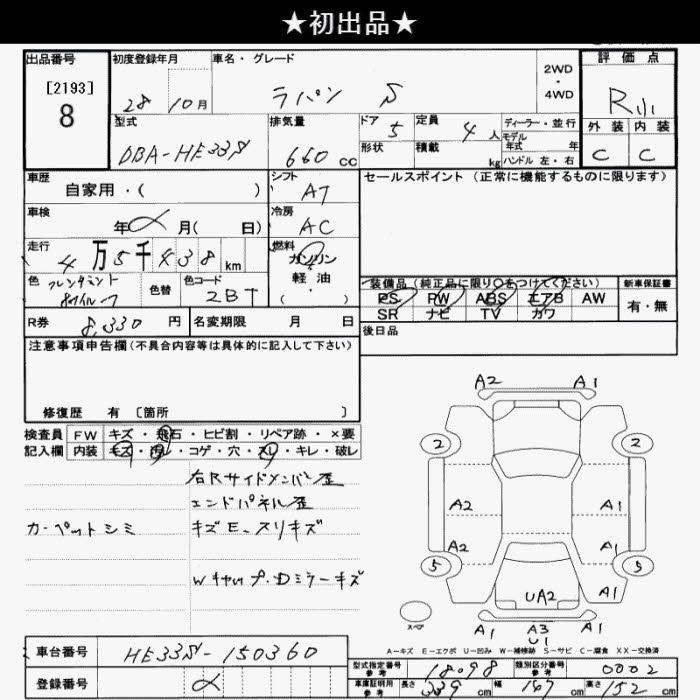 ★初出品★
出品番号
[2193]
8
初度登録年月
28 10月
車名・グレード
ラパン S
2WD
・
4WD
評価点
R小
外装 内装
C C
型式
DBA-HE33S
排気量
660 cc
ドア 5
形状
定員 4人
積載 kg
ディーラー・並行
モデル
年式 年
ハンドル 左・右
車歴
自家用・( )
シフト
AT
セールスポイント (正常に機能するものに限ります)
車検
年 月( 日)
冷房
AC
走行
4万5千438km
燃料
ガソリン
軽油
( )
色 フレンチミント
色替
色コード
2BT
装備品(純正品に限り○をつけてください)
PS PW ABS エアB AW
SR ナビ TV カワ
新車保証書
有・無
R券 8,330円
名変期限 月 日
後日品
注意事項申告欄(不具合内容等は具体的に記入して下さい)
修復歴 有 〔箇所 〕
検査員 FW キズ・飛石・ヒビ割・リペア跡・×要
記入欄 内装 キズ・汚レ・コゲ・穴・スレ・キレ・破レ
右Rサイドメンバー歪
エンドパネル歪
カーペットシミ
キズE、スリキズ
Wキャップ・Dミラーキズ
A2 A1
2 2
A2 A1
A2 A1
5 5
UA2 A1
スペア
A1 A3 A1
U1
A-キズ E-エクボ U-凹み W-補修跡 S-サビ C-腐食 XX-交換済
車台番号 HE33S-150360
登録番号
型式指定番号
参考
18098
類別区分番号
参考
0002
車庫証明用
参考
長さ 339cm 幅 147cm 高さ 152cm